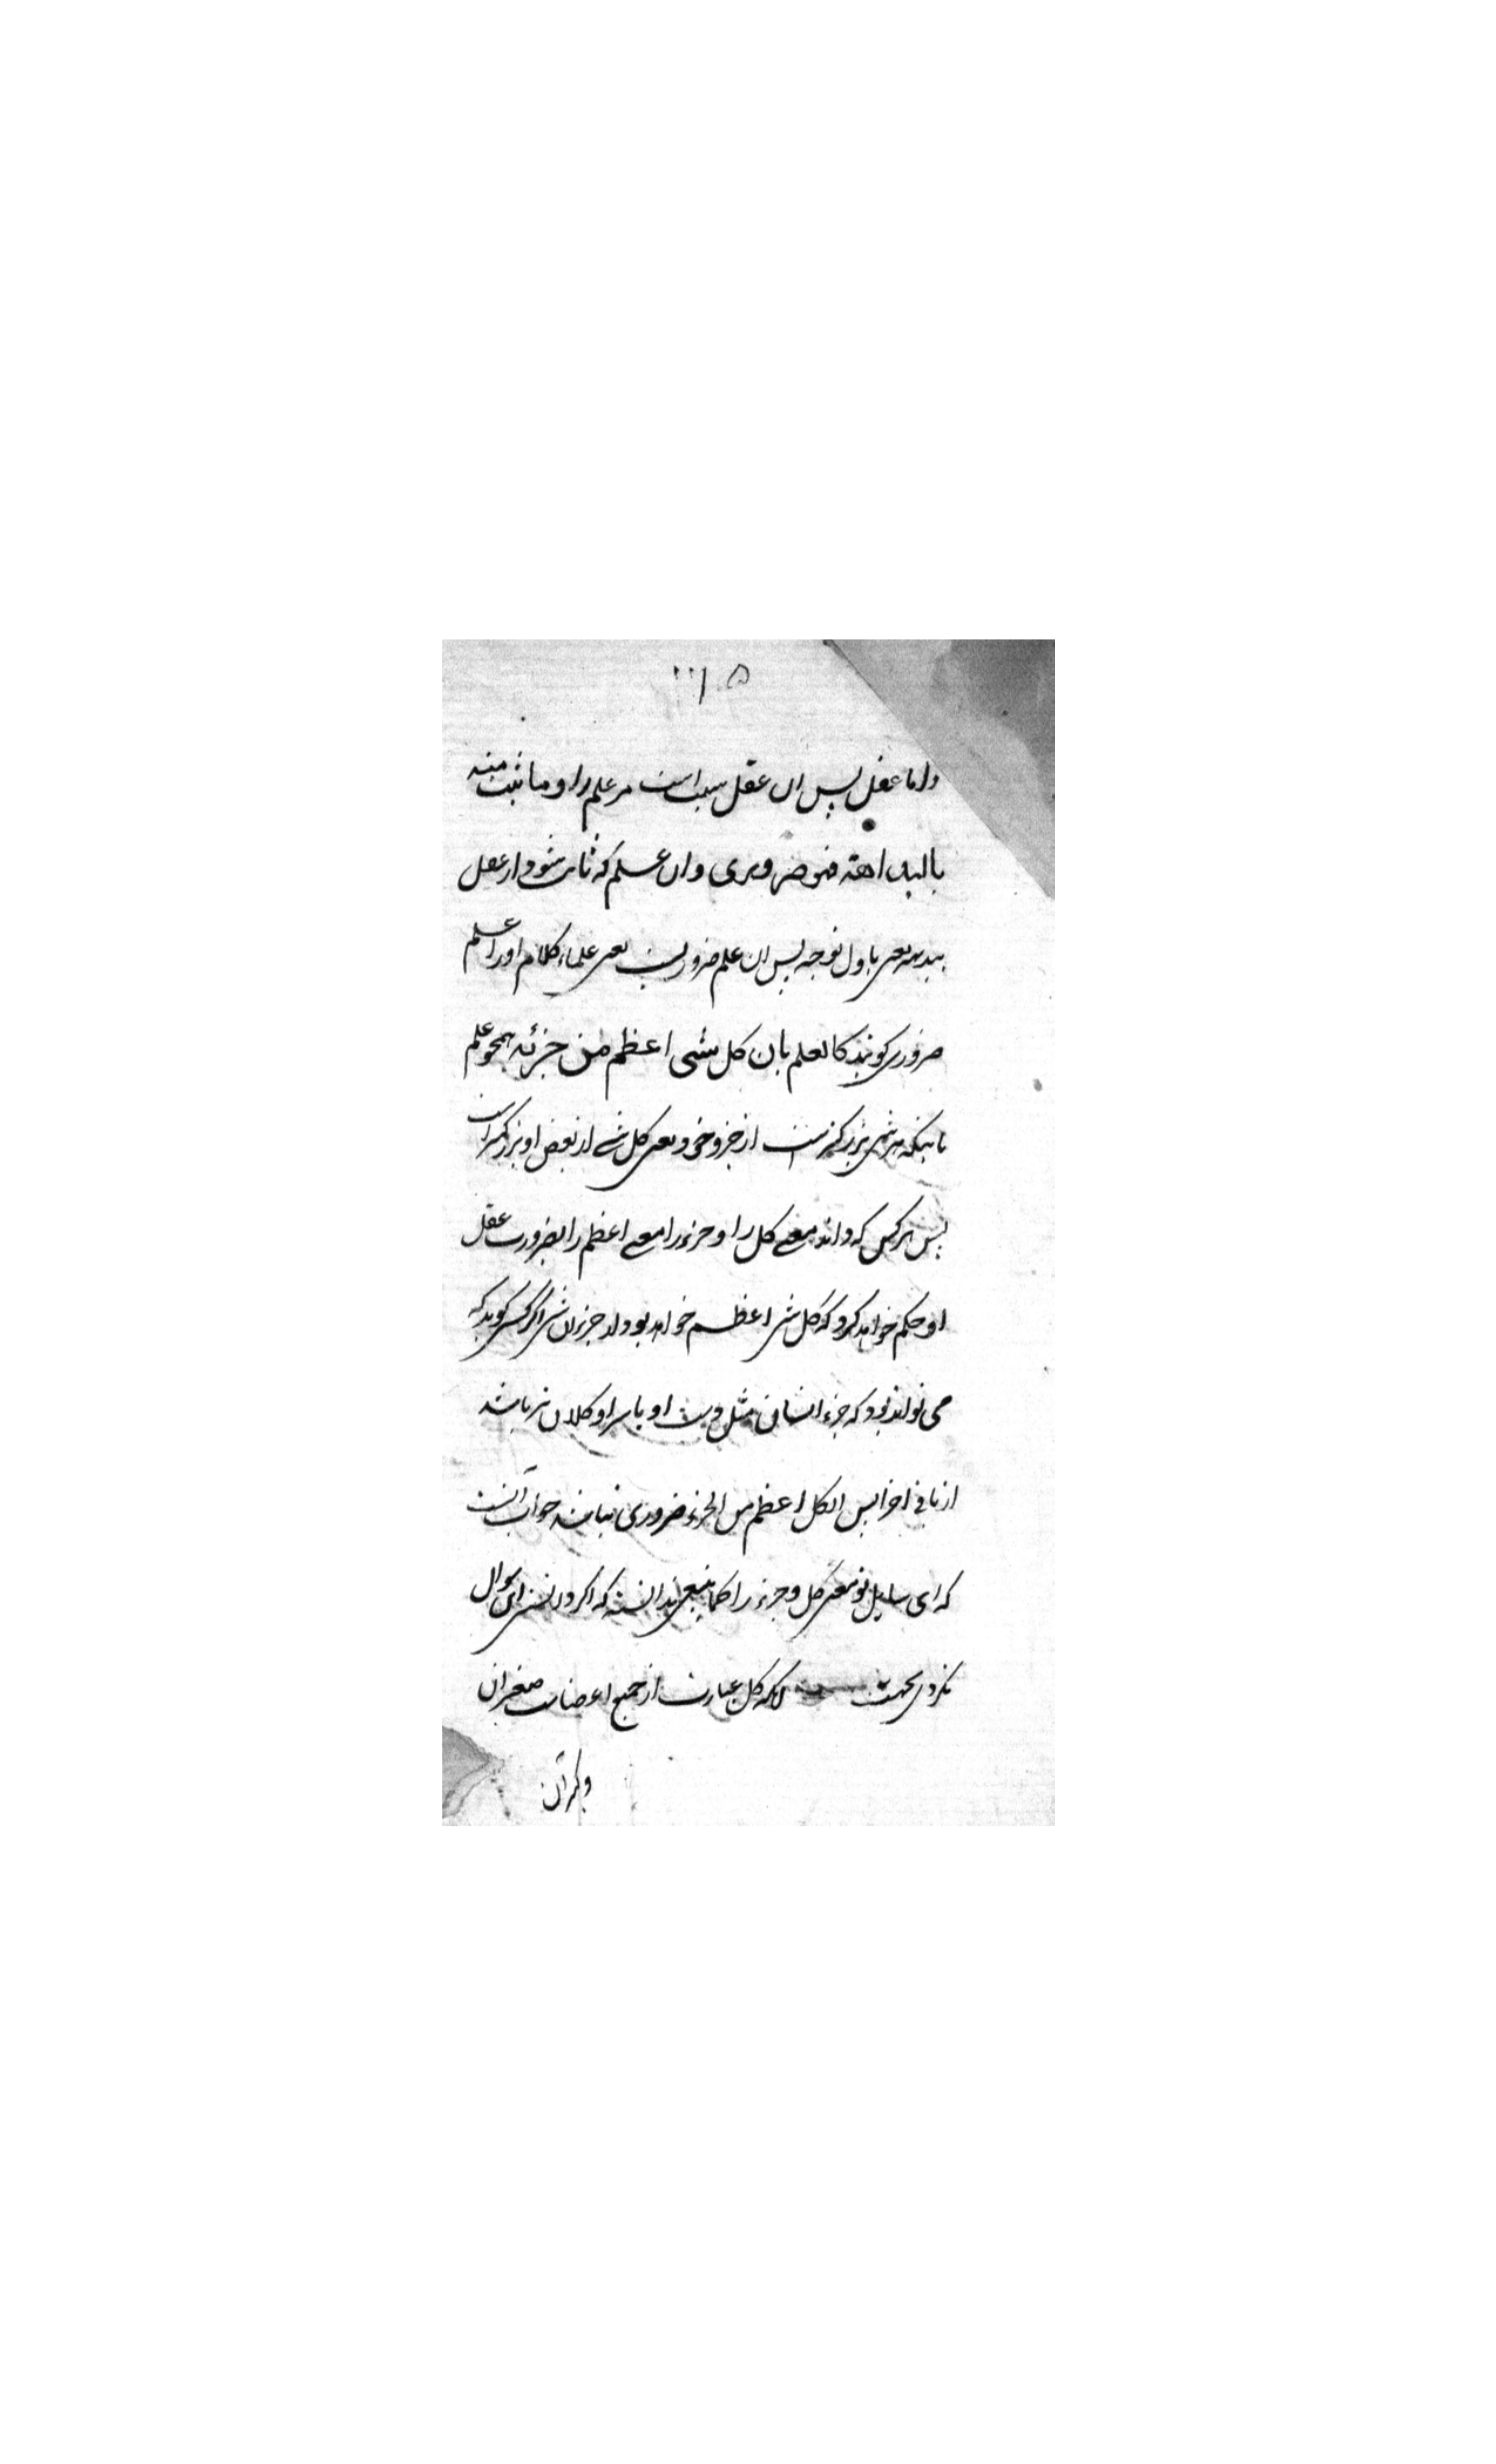 ۱۱۵
واما عقل پس ان عقل سبب است مر علم را وما ثبت منه
بالبداهة فهو ضروری وان علم که ثابت شود از عقل
ببدیهه یعنی باول توجه پس ان علم ضروریست یعنی علماء کلام اورا علم
ضروری کویند کالعلم بان کل شی اعظم من جزئه همچو علم
باینکه هر شی بزرکترست از جزو خود یعنی کل شے از بعض او بزرکتر است
پس هرکس که داند معنے کل را و جزء را معنے اعظم را بضرورت عقل
او حکم خواهد کرد که کل شی اعظم خواهد بود از جزء ان شی اکر کسی کوید که
می تواند بود که جزء انسانی مثل دست او یا سر او کلان تر باشد
از باقی اجزا پس الکل اعظم من الجزء ضروری نباشد جواب آنست
که ای سایل تو معنی کل و جزء را کما ینبغی ندانسته که اکر دانستی این سوال
نکردی بجهت انکه کل عبارت از جمیع اعضاست صغیر ان
وکبر آن